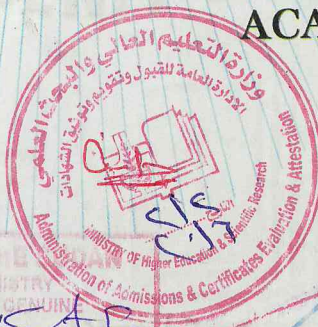 ACA
وزارة التعليم العالي والبحث العلمي
الإدارة العامة للقبول وتقويم وتوثيق الشهادات
MINISTRY OF Higher Education & Scientific Research
Administration of Admissions & Certificates Evaluation & Attestation
GENUINE